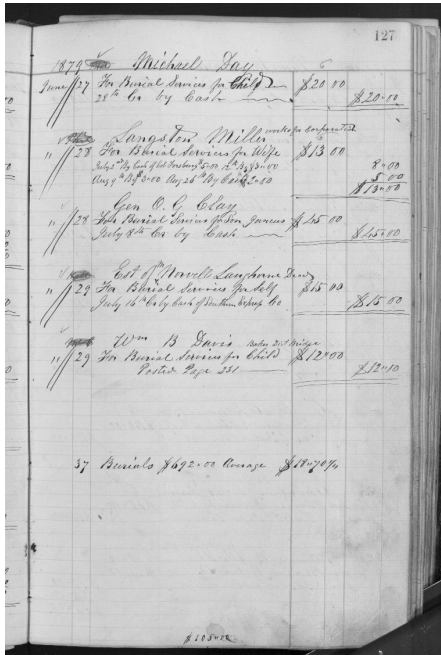 127
1879 Michael Day
June 27 For Burial Services for Child $20.00
28th Cr by Cash $20.00
Langston Miller works for Corporated
" 28 For Burial Services for Wife $13.00
July 2nd By Cash of 5.00 By 3.00 8.00
Aug 9th By 3.00 Aug 26th By Cash 2.00 5.00
$13.00
Gen O. G. Clay
" 28 For Burial Services for Son $45.00
July 8th Cr by Cash $45.00
Est of Norvell Langhorne Decd
" 29 For Burial Services for Self $15.00
July 16th Cr by Cash of Southern Express Co $15.00
Wm B Davis Baker Bridge
" 29 For Burial Services for Child $12.00
Posted Page 331 $12.00
37 Burials $692.00 Average $18.70
$105.00